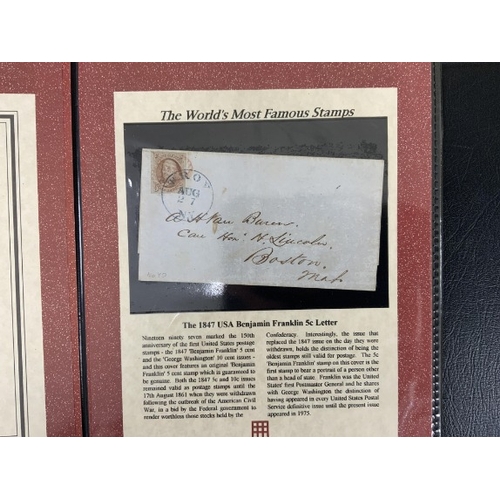 The World's Most Famous Stamps
AUG
27
Care Hon. H. Lincoln,
Boston,
The 1847 USA Benjamin Franklin 5c Letter
Nineteen ninety seven marked the 150th
anniversary of the first United States postage
stamps - the 1847 'Benjamin Franklin' 5 cent
and the 'George Washington' 10 cent issues -
and this cover features an original 'Benjamin
Franklin' 5 cent stamp which is guaranteed to
be genuine. Both the 1847 5c and 10c issues
remained valid as postage stamps until the
17th August 1861 when they were withdrawn
following the outbreak of the American Civil
War, in a bid by the Federal government to
render worthless those stocks held by the
Confederacy. Interestingly, the issue that
replaced the 1847 issue on the day they were
withdrawn, holds the distinction of being the
oldest stamps still valid for postage. The 5c
'Benjamin Franklin' stamp on this cover is the
first stamp to bear a portrait of a person other
than a head of state. Franklin was the United
States' first Postmaster General and he shares
with George Washington the distinction of
having appeared in every United States Postal
Service definitive issue until the present issue
appeared in 1975.